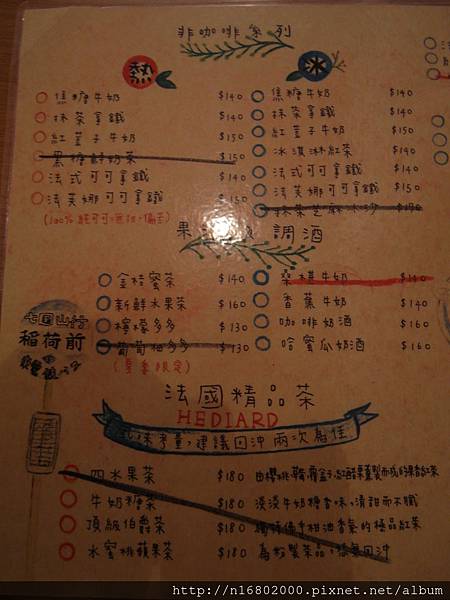 非咖啡系列
熱
焦糖牛奶 $140
抹茶拿鐵 $140
紅薑子牛奶 $150
黑糖鮮奶茶 $150
法式可可拿鐵 $140
法芙娜可可拿鐵 $150
冰
焦糖牛奶 $140
抹茶拿鐵 $140
紅薑子牛奶 $150
冰淇淋紅茶 $140
法式可可拿鐵 $140
法芙娜可可拿鐵 $150
抹茶芝麻冰沙 $150
調酒
金桔蜜茶 $140
新鮮水果茶 $160
檸檬多多 $130
葡萄柚多多 $130
(夏季限定)
桑椹牛奶 $140
香蕉牛奶 $140
咖啡奶酒 $160
哈蜜瓜奶酒 $160
七国山行
稲荷前
法國精品茶
HEDIARD
考量,建議回沖兩次為佳
四水果茶 $180
牛奶糖茶 $180 淡淡牛奶糖香味,清甜而不膩
頂級伯爵茶 $180
水蜜桃蘋果茶 $180
http://n16802000.pixnet.net/album